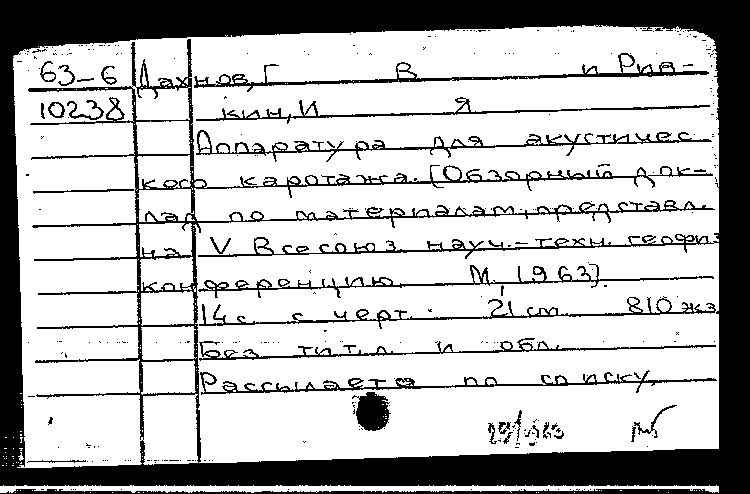 63-6 Дахнов, Г В и Рив-
10238 кин, И Я
Аппаратура для акустичес
кого каротажа. [Обзорный док-
лад по материалам, представл.
на V Всесоюз. науч.-техн. геофиз
конференцию. М, 1963].
14 с. с черт. 21 см 810 экз
Без тит. л. и обл.
Рассылается по списку.